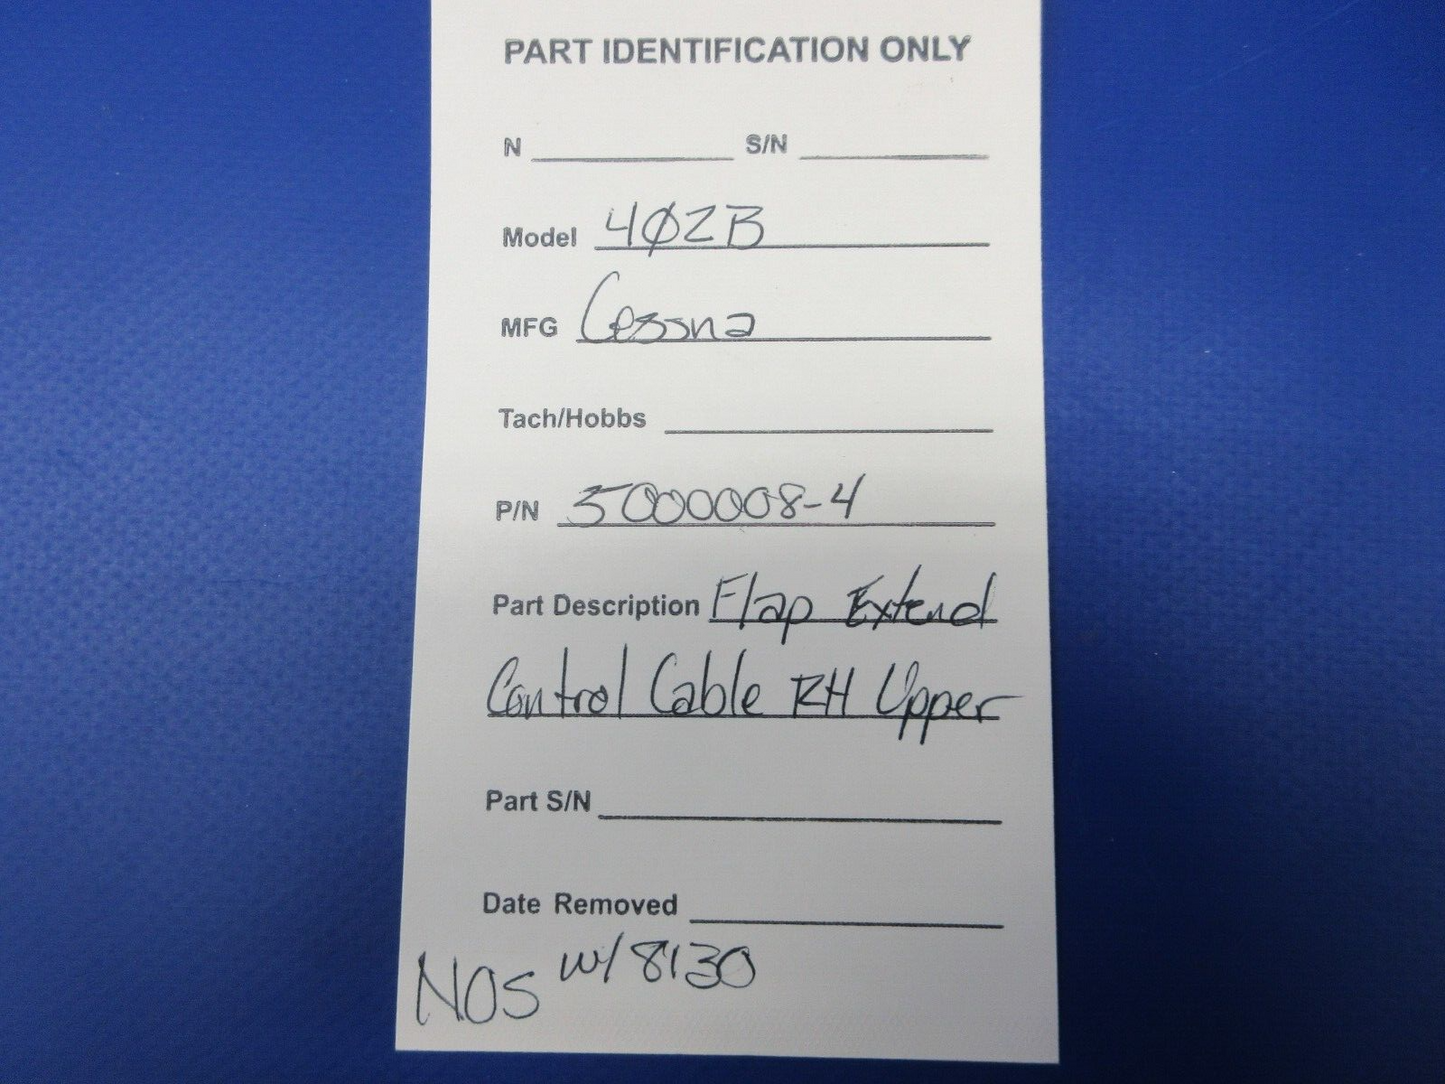 PART IDENTIFICATION ONLY
N S/N
Model 402B
MFG Cessna
Tach/Hobbs
P/N 5000008-4
Part Description Flap Extend
Control Cable RH Upper
Part S/N
Date Removed
NOS w/ 8130